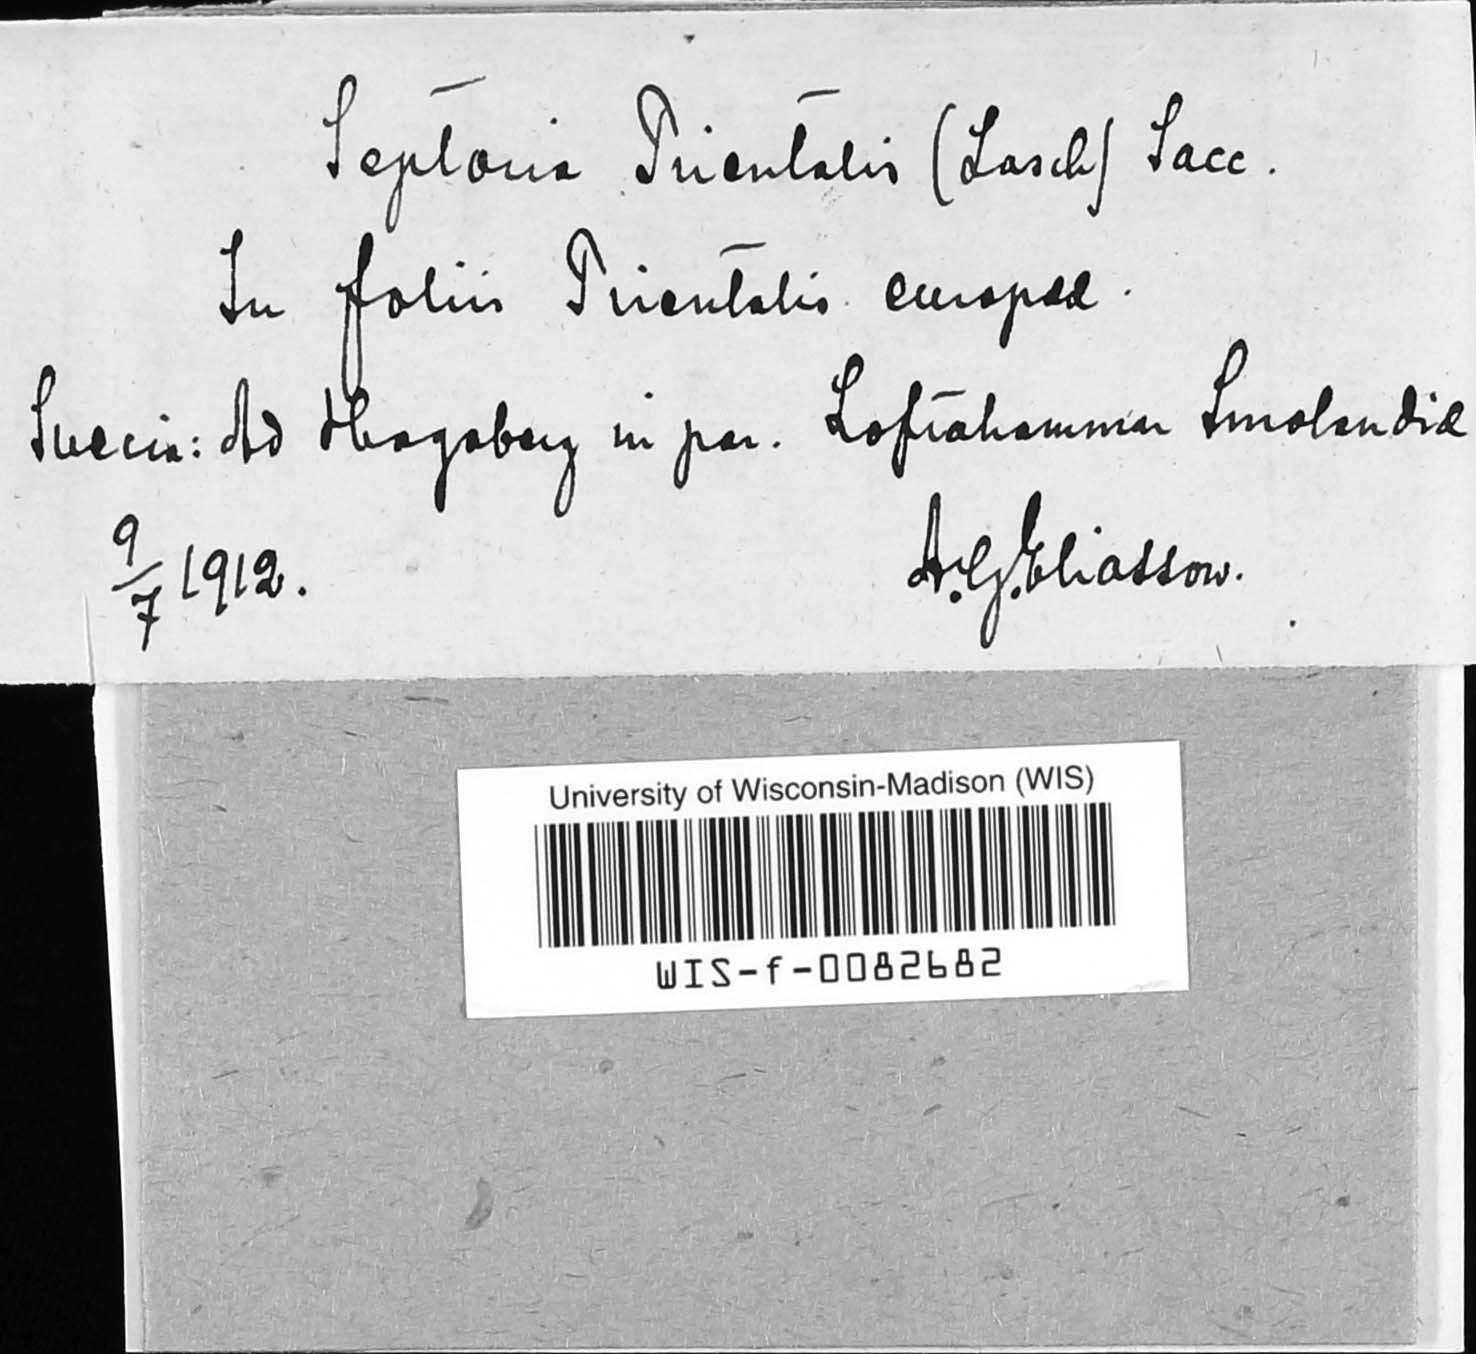 Septoria Trientalis (Lasch) Sacc.
In foliis Trientalis europææ.
Suecia: Ad Hagsberg in par. Loftahammar Smolandiæ
9/7 1912.
A.G.Eliasson.
University of Wisconsin-Madison (WIS)
WIS-f-0082682